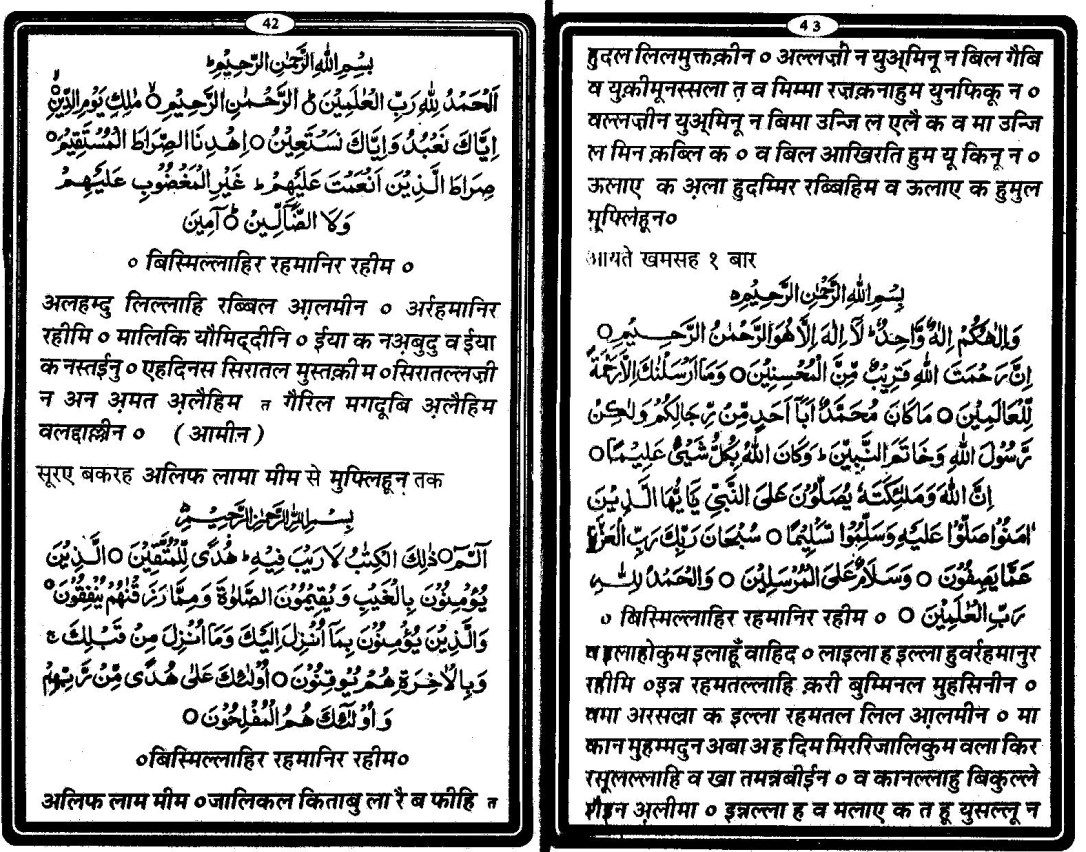 42
بِسْمِ اللهِ الرَّحْمٰنِ الرَّحِيْمِ ؕ
اَلْحَمْدُ لِلّٰهِ رَبِّ الْعٰلَمِيْنَ ۙ الرَّحْمٰنِ الرَّحِيْمِ ۙ مٰلِكِ يَوْمِ الدِّيْنِ ؕ
اِيَّاكَ نَعْبُدُ وَاِيَّاكَ نَسْتَعِيْنُ ○ اِهْدِنَا الصِّرَاطَ الْمُسْتَقِيْمَ ○
صِرَاطَ الَّذِيْنَ اَنْعَمْتَ عَلَيْهِمْ ؕ غَيْرِ الْمَغْضُوْبِ عَلَيْهِمْ
وَلَا الضَّآلِّيْنَ ○ آمِيْن
० बिस्मिल्लाहिर रहमानिर रहीम ०
अलहम्दु लिल्लाहि रब्बिल आ़लमीन ० अर्रहमानिर
रहीमि ० मालिकि यौमिद्दीनि ० ईया क नअ़बुदु व ईया
क नस्तईनु ० एहदिनस सिरातल मुस्तक़ीम ० सिरातल्लज़ी
न अन अ़मत अ़लैहिम त गैरिल मगदूबि अ़लैहिम
वलद्दाल्लीन ० (आमीन)
सूरए बकरह अलिफ लामा मीम से मुफ्लिहून तक
بِسْمِ اللهِ الرَّحْمٰنِ الرَّحِيْمِ
الٓمّٓ ○ ذٰلِكَ الْكِتٰبُ لَا رَيْبَ فِيْهِ ؕ هُدًى لِّلْمُتَّقِيْنَ ○ الَّذِيْنَ
يُؤْمِنُوْنَ بِالْغَيْبِ وَيُقِيْمُوْنَ الصَّلٰوةَ وَمِمَّا رَزَقْنٰهُمْ يُنْفِقُوْنَ ○
وَالَّذِيْنَ يُؤْمِنُوْنَ بِمَآ اُنْزِلَ اِلَيْكَ وَمَآ اُنْزِلَ مِنْ قَبْلِكَ ۚ
وَبِالْاٰخِرَةِ هُمْ يُوْقِنُوْنَ ○ اُولٰٓئِكَ عَلٰى هُدًى مِّنْ رَّبِّهِمْ
وَاُولٰٓئِكَ هُمُ الْمُفْلِحُوْنَ ○
०बिस्मिल्लाहिर रहमानिर रहीम०
अलिफ लाम मीम ०जालिकल किताबु ला रै ब फीहि त
43
हुदल लिलमुत्तक़ीन ० अल्लज़ी न युअ्मिनू न बिल गैबि
व युक़ीमूनस्सला त़ व मिम्मा रज़क़नाहुम युनफिकू न ०
वल्लज़ीन युअ्मिनू न बिमा उन्जि ल एलै क व मा उन्जि
ल मिन क़ब्लि क ० व बिल आखिरति हुम यू किनू न ०
ऊलाए क अ़ला हुदम्मिर रब्बिहिम व ऊलाए क हुमुल
मूफ्लिहून०
आयते खमसह १ बार
بِسْمِ اللهِ الرَّحْمٰنِ الرَّحِيْمِ ○
وَاِلٰهُكُمْ اِلٰهٌ وَّاحِدٌ ؕ لَآ اِلٰهَ اِلَّا هُوَ الرَّحْمٰنُ الرَّحِيْمُ ○
اِنَّ رَحْمَتَ اللهِ قَرِيْبٌ مِّنَ الْمُحْسِنِيْنَ ○ وَمَا اَرْسَلْنٰكَ اِلَّا رَحْمَةً
لِّلْعَالَمِيْنَ ○ مَا كَانَ مُحَمَّدٌ اَبَآ اَحَدٍ مِّنْ رِّجَالِكُمْ وَلٰكِنْ
رَّسُوْلَ اللهِ وَخَاتَمَ النَّبِيّٖنَ ؕ وَكَانَ اللهُ بِكُلِّ شَيْئٍ عَلِيْمًا ○
اِنَّ اللهَ وَمَلٰٓئِكَتَهٗ يُصَلُّوْنَ عَلَى النَّبِيِّ يٰٓاَيُّهَا الَّذِيْنَ
اٰمَنُوْا صَلُّوْا عَلَيْهِ وَسَلِّمُوْا تَسْلِيْمًا ○ سُبْحَانَ رَبِّكَ رَبِّ الْعِزَّةِ
عَمَّا يَصِفُوْنَ ○ وَسَلَامٌ عَلَى الْمُرْسَلِيْنَ ○ وَالْحَمْدُ لِلّٰهِ
رَبِّ الْعٰلَمِيْنَ ○ ० बिस्मिल्लाहिर रहमानिर रहीम ०
व इलाहोकुम इलाहूँ वाहिद ० लाइला ह इल्ला हुवर्रहमानुर
रहीमि ०इन्न रहमतल्लाहि क़री बुम्मिनल मुहसिनीन ०
वमा अरसल्ना क इल्ला रहमतल लिल आ़लमीन ० मा
कान मुहम्मदुन अबा अ ह दिम मिररिजालिकुम वला किर
रसूलल्लाहि व खा तमन्नबीईन ० व कानल्लाहु बिकुल्ले
शैइन अ़लीमा ० इन्नल्ला ह व मलाए क त हू युसल्लू न